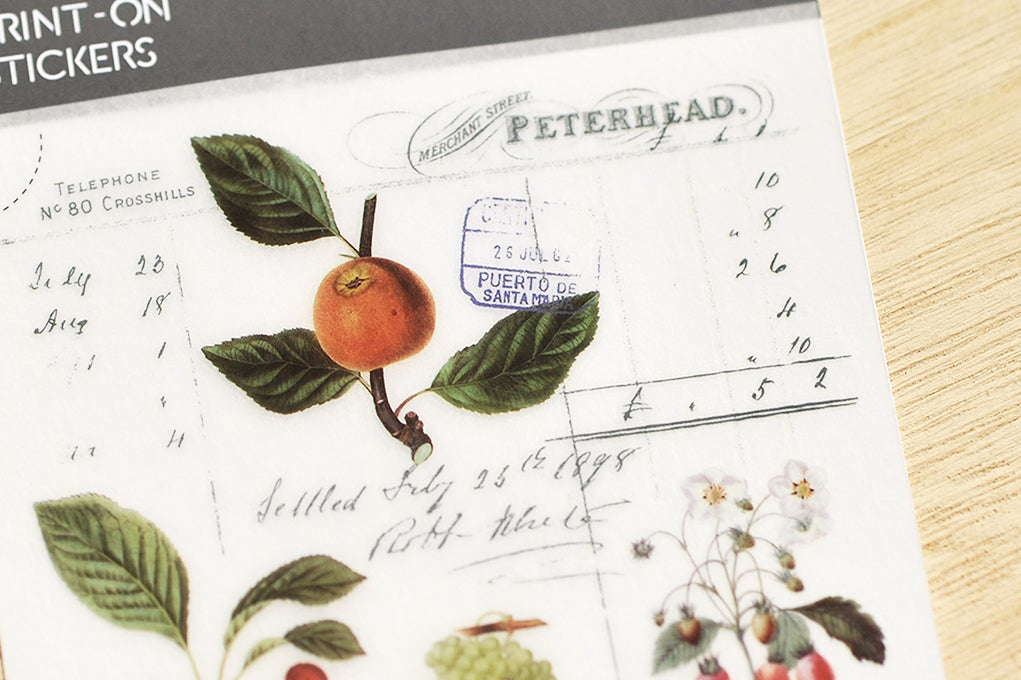 PRINT-ON
STICKERS
MERCHANT STREET.
PETERHEAD.
£
TELEPHONE
Nº 80 CROSSHILLS
10
" 8
2 6
4
" 10
£ " 5 2
July 23
Aug 18
1
"
4
26 JUL 62
PUERTO DE
SANTA MARIA
Settled July 25th 1898
Robt White